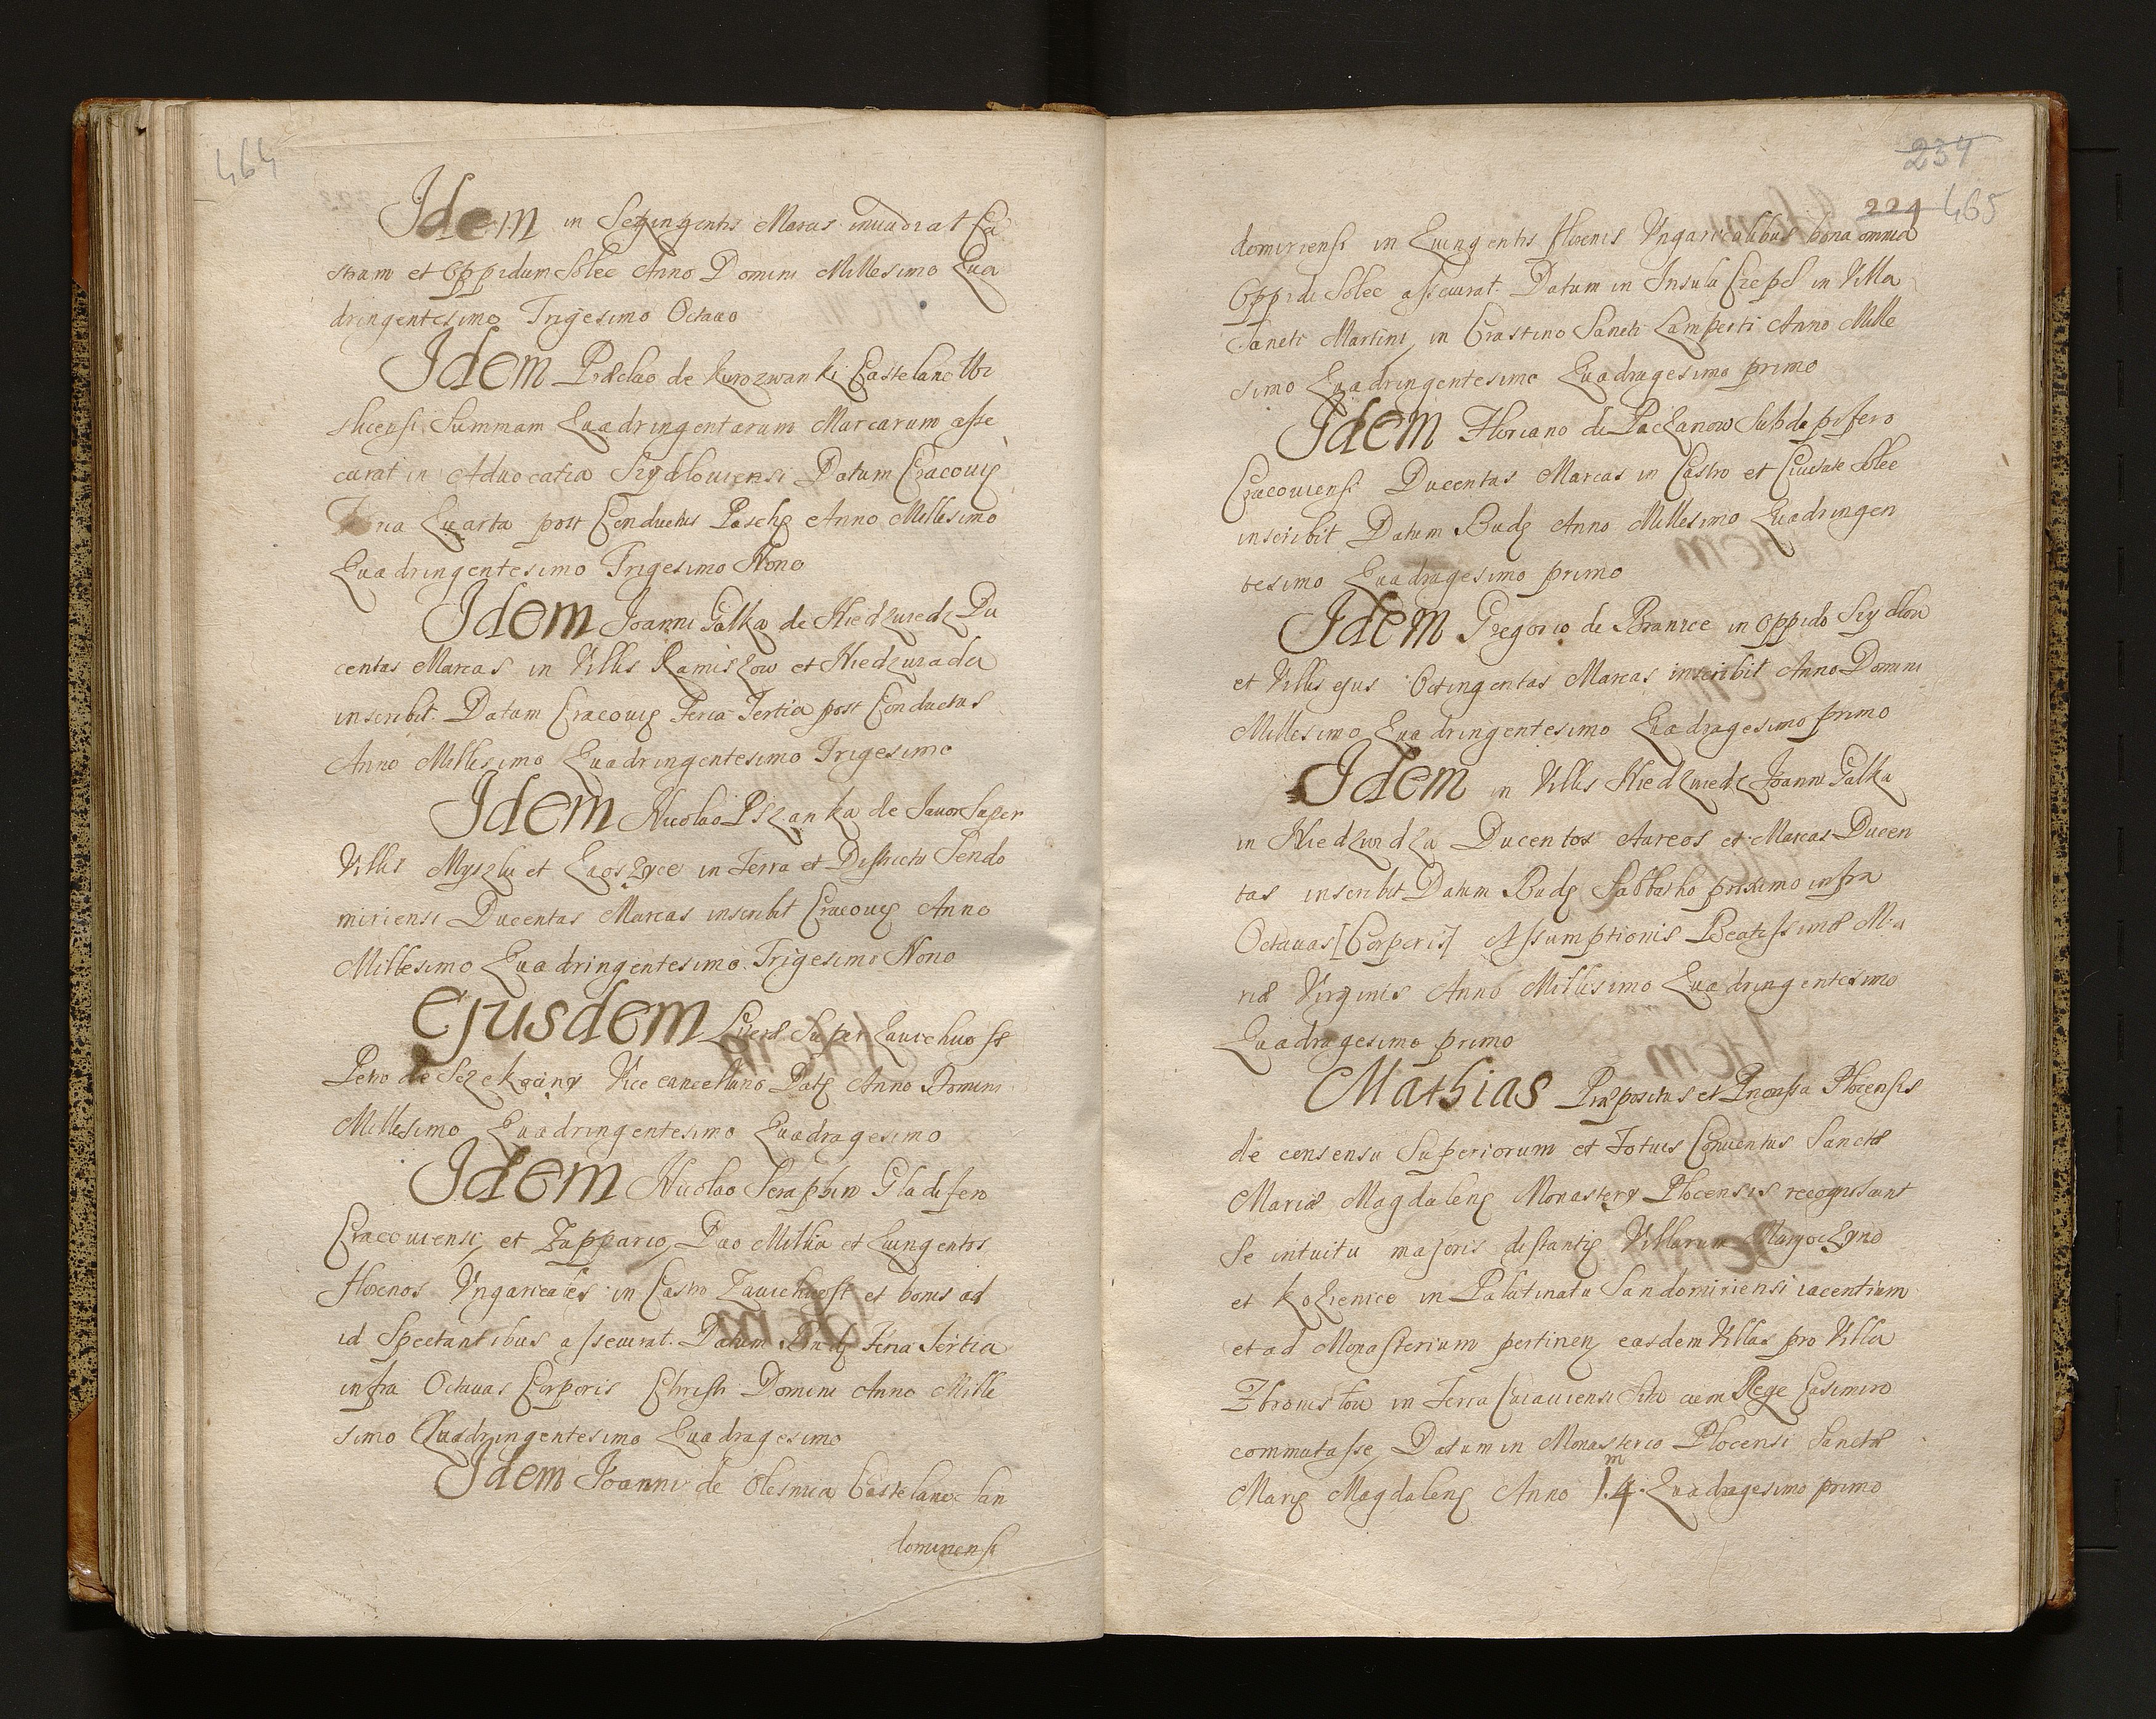 464
Idem in Septingentis Marcis invadiat Ca
strum et Oppidum Solec Anno Domini Millesimo Qua
dringentesimo Trigesimo Octavo
Idem Predslao de Kurozwanki Castelano Wi
slicensi Summam Quadringentarum Marcarum asse
curat in Advocatia Szydloviensi Datum Cracovię
Feria Quarta post Conductus Paschę Anno Millesimo
Quadringentesimo Trigesimo Nono
Idem Joanni Gałka de Niedzwiedz Du
centas Marcas in Villis Ramiszow et Niedzwiada
inscribit. Datum Cracovię Feria Tertia post Conductus
Anno Millesimo Quadringentesimo Trigesimo
Idem Nicolao Pszanka de Javor Super
Villis Myszlu et in Terra et Districtu Sendo
miriensi Ducentas Marcas inscribit Cracovię Anno
Millesimo Quadringentesimo Trigesimo Nono
Ejusdem Literæ Super Zavichuost
Petro de Szczekociny Vice cancellario Datę Anno Domini
Millesimo Quadringentesimo Quadragesimo
Idem Nicolao Seraphin Gladifero
Cracoviensi, et Zuppario, Duo Millia et Quingentos
florenos Ungaricales in Castro Zavichwost et bonis ad
id Spectantibus assecurat. Datum Budę Feria Tertia
infra Octavas Corporis Christi Domini Anno Mille
simo Quadringentesimo Quadragesimo
Idem Joanni de Olesnica Castelano San
domiriensi
234
224 465
domiriensi in Quingentis florenis Ungaricalibus bona omnia
Oppidi Solec assecurat. Datum in Insula Czepel in Villa
Sancti Martini, in Crastino Sancti Lamperti Anno Mille
simo Quadringentesimo Quadragesimo primo
Idem Floriano de Paczanow Subdapifero
Cracoviensi Ducentas Marcas in Castro et Civitate Solec
inscribit Datum Budę Anno Millesimo Quadringen
tesimo Quadragesimo primo
Idem Gregorio de Branice in oppido Szydlow
et Villis ejus Octingentas Marcas inscribit Anno Domini
Millesimo Quadringentesimo Quadragesimo primo
Idem in Villis Niedzwiedz Joanni Gałka
in Niedzwidza Ducentos Aureos et Marcas Ducen
tas inscribit Datum Budę Sabbatho proximo infra
Octavas [Corporis] Assumptionis Beatissimæ Ma
riæ Virginis Anno Millesimo Quadringentesimo
Quadragesimo primo
Mathias Præpositus et Priorissa Plocensis
de consensu Superiorum et Totius Conventus Sanctæ
Mariæ Magdalenę Monastery Plocensis recognoscunt
se intuitu majoris distantię Villarum
et Kozienice in Palatinatu Sandomiriensi iacentium
et ad Monasterium pertinen easdem Villas pro Villa
in Terra Cuiaviensi Sita cum Rege Casimiro
commutasse, Datum in Monasterio Plocensi Sanctæ
Marię Magdalenę Anno 1.4. m Quadragesimo primo